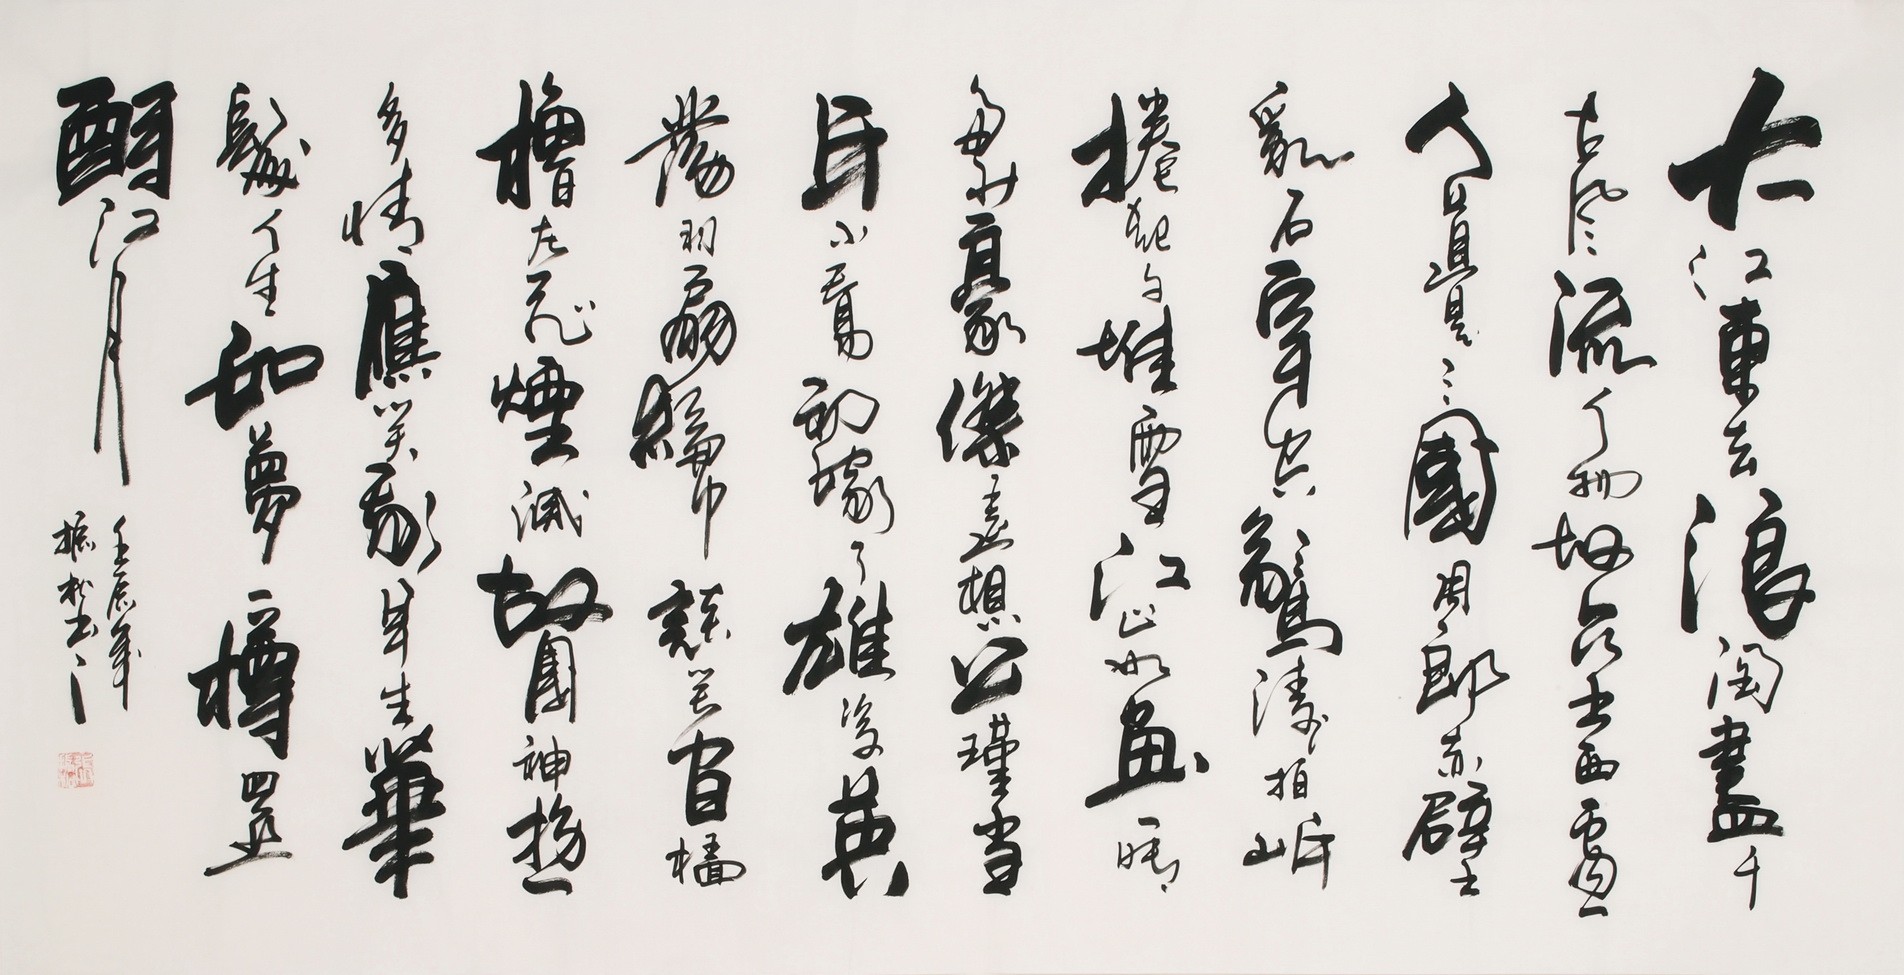 大江東去浪淘盡千
古風流人物故壘西邊
人道是三國周郎赤壁
亂石穿空驚濤拍岸
捲起千堆雪江山如畫一時
多少豪傑遙想公瑾當
年小喬初嫁了雄姿英
發羽扇綸巾談笑間檣
櫓灰飛煙滅故國神遊
多情應笑我早生華
髮人生如夢一樽還
酹江月
壬辰年
振松書